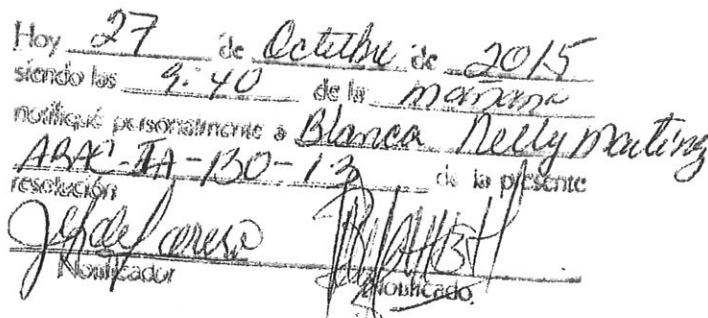 Hoy 27 de Octubre de 2015
siendo las 9:40 de la manana
notifiqué personalmente a Blanca Nelly
ABAC-IA-130-13 de la presente
resolución
Notificador Notificado